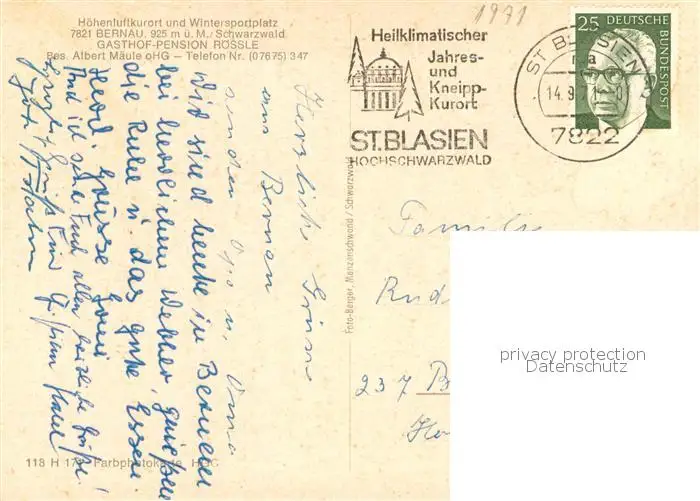 1971
Höhenluftkurort und Wintersportplatz
7821 BERNAU, 925 m ü. M./Schwarzwald
GASTHOF-PENSION RÖSSLE
Bes. Albert Mäule oHG – Telefon Nr. (07675) 347
Heilklimatischer
Jahres-
und
Kneipp-
Kurort
ST.BLASIEN
HOCHSCHWARZWALD
ST. BLASIEN
14.9.71
7822
25 DEUTSCHE
BUNDESPOST
Herzliche Grüsse
aus Bernau
senden Opa u. Oma
Wir sind heute in Bernau
bei herrlichem Wetter, genießen
die Ruhe u. das gute Essen.
Herzl. Grüsse
Und ich sende Euch allen herzliche Grüße
Foto-Berger, Menzenschwand / Schwarzwald
Familie
Rud
237 B
118 H 17 Farbphotokarte HGC
privacy protection
Datenschutz